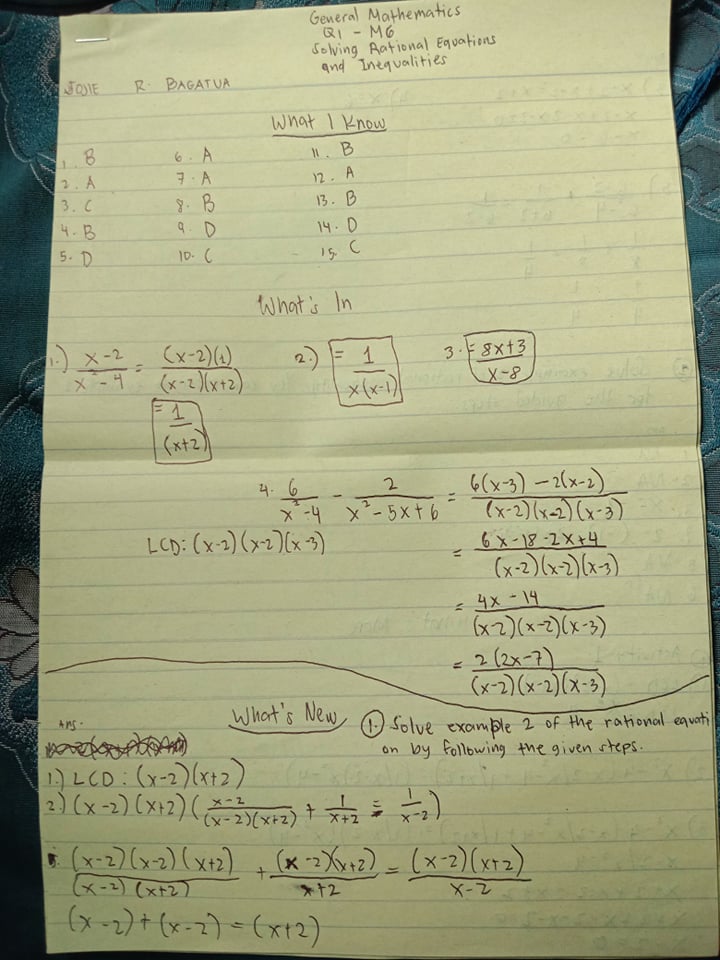 General Mathematics
Q1 - M6
Solving Rational Equations
and Inequalities
JOJIE R. BAGATUA
What I Know
1. B 6. A 11. B
2. A 7. A 12. A
3. C 8. B 13. B
4. B 9. D 14. D
5. D 10. C 15. C
What's In
1.) (x-2)/(x²-4) = (x-2)(1)/(x-2)(x+2) 2.) = 1/x(x-1) 3. = 8x+3/x-8
= 1/(x+2)
4. 6/(x²-4) - 2/(x²-5x+6) = 6(x-3) - 2(x-2)/(x-2)(x-2)(x-3)
LCD: (x-2)(x-2)(x-3) = 6x-18-2x+4/(x-2)(x-2)(x-3)
= 4x-14/(x-2)(x-2)(x-3)
= 2(2x-7)/(x-2)(x-2)(x-3)
What's New 1. Solve example 2 of the rational equati
on by following the given steps.
Ans.
1.) LCD: (x-2)(x+2)
2.) (x-2)(x+2)(x-2/(x-2)(x+2) + 1/x+2 = 1/x-2)
(x-2)(x-2)(x+2)/(x-2)(x+2) + (x-2)(x+2)/x+2 = (x-2)(x+2)/x-2
(x-2)+(x-2) = (x+2)